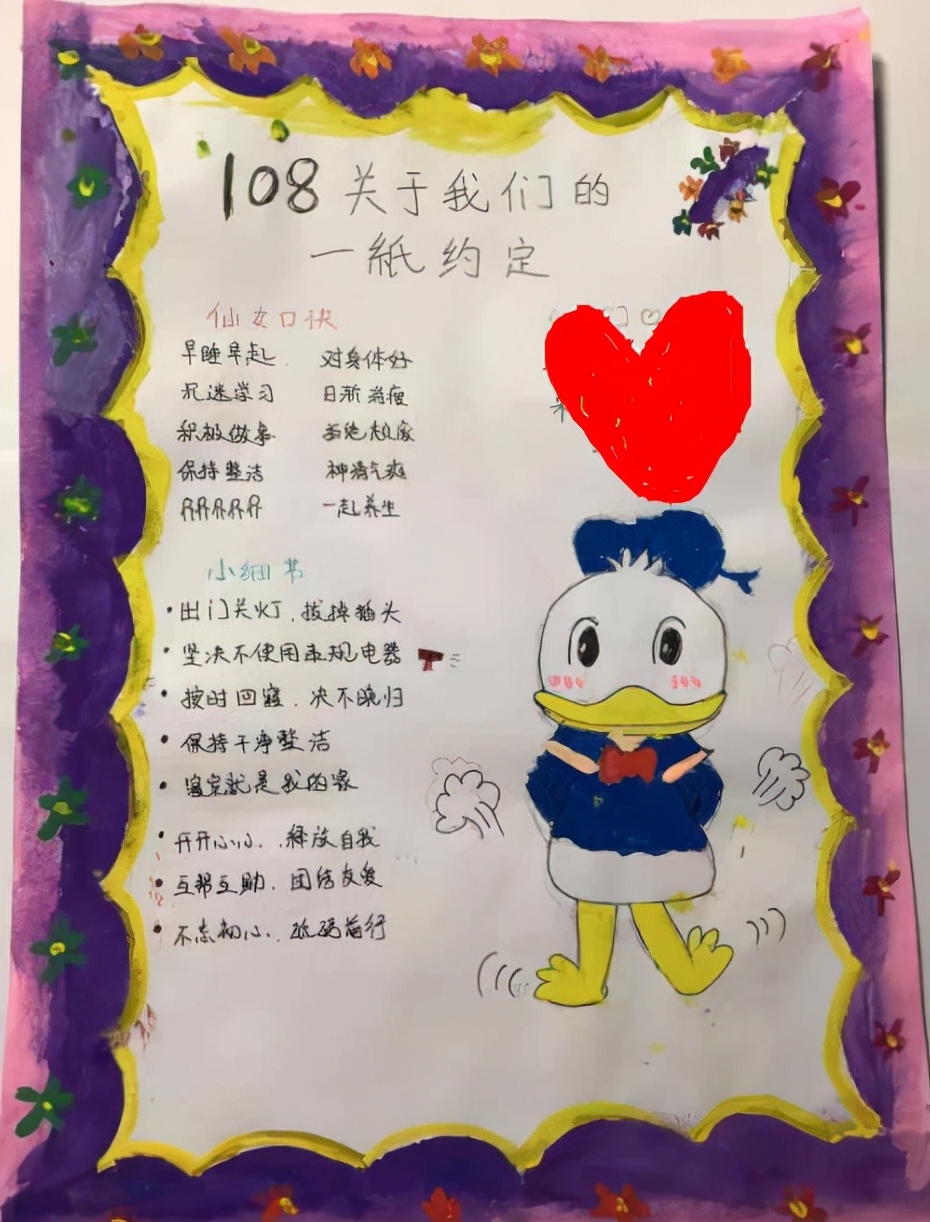 108 关于我们的
一紙约定
仙女口诀
早睡早起. 对身体好
沉迷学习 日渐消瘦
积极做事
保持整洁 神清气爽
一起养生
小细节
·出门关灯.拔掉插头
·坚决不使用违规电器
·按时回寝.决不晚归
·保持干净整洁
·寝室就是我的家
·开开心心.释放自我
·互帮互助.团结友爱
·不忘初心.砥砺前行